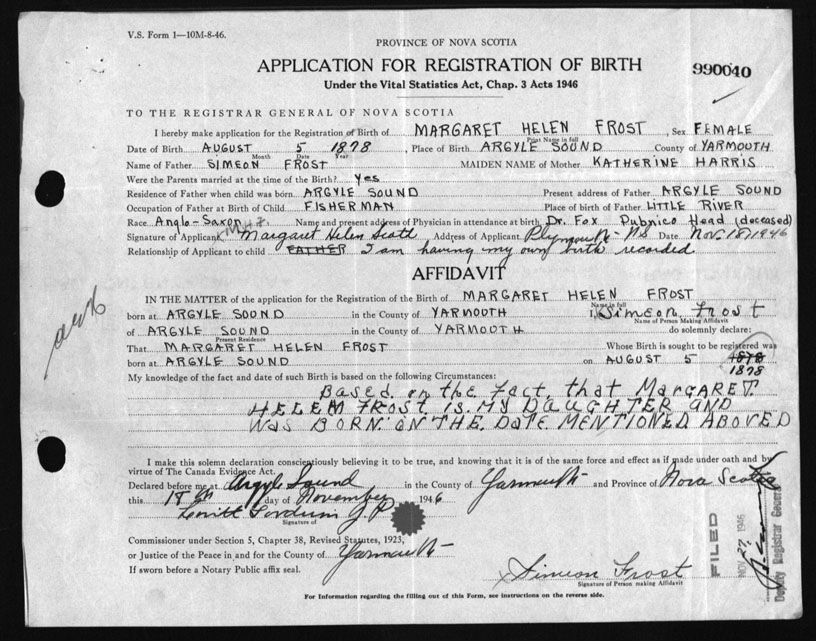 V.S. Form 1—10M-8-46.
PROVINCE OF NOVA SCOTIA
APPLICATION FOR REGISTRATION OF BIRTH
990040
Under the Vital Statistics Act, Chap. 3 Acts 1946
TO THE REGISTRAR GENERAL OF NOVA SCOTIA
I hereby make application for the Registration of Birth of MARGARET HELEN FROST, Sex FEMALE
Print Name in full
Date of Birth AUGUST 5 1878, Place of Birth ARGYLE SOUND County of YARMOUTH
Month Date Year
Name of Father SIMEON FROST MAIDEN NAME of Mother KATHERINE HARRIS
Were the Parents married at the time of the Birth? Yes
Residence of Father when child was born ARGYLE SOUND Present address of Father ARGYLE SOUND
Occupation of Father at Birth of Child FISHERMAN Place of birth of Father LITTLE RIVER
Race Anglo-Saxon Name and present address of Physician in attendance at birth Dr. Fox Pubnico Head (deceased)
Signature of Applicant Margaret Helen Scott Address of Applicant Plymouth NS Date Nov. 18, 1946
Relationship of Applicant to child FATHER I am having my own birth recorded
AFFIDAVIT
IN THE MATTER of the application for the Registration of the Birth of MARGARET HELEN FROST
Name in full
born at ARGYLE SOOND in the County of YARMOUTH I, Simeon Frost
Name of Person Making Affidavit
of ARGYLE SOUND in the County of YARMOUTH do solemnly declare:
Present Residence
That MARGARET HELEN FROST Whose Birth is sought to be registered was
born at ARGYLE SOUND on AUGUST 5 1878
1878
My knowledge of the fact and date of such Birth is based on the following Circumstances:
BASED on the FACT that MARGARET
HELEM FROST IS MY DAUGHTER AND
WAS BORN ON THE DATE MENTIONED ABOVED
I make this solemn declaration conscientiously believing it to be true, and knowing that it is of the same force and effect as if made under oath and by
virtue of The Canada Evidence Act.
Declared before me at Argyle Sound in the County of Yarmouth and Province of Nova Scotia
this 18th day of November 1946
J.P.
Signature of
Commissioner under Section 5, Chapter 38, Revised Statutes, 1923,
or Justice of the Peace in and for the County of Yarmouth
If sworn before a Notary Public affix seal.
Simeon Frost
Signature of Person making Affidavit
FILED
NOV 27 1946
Deputy Registrar General
For Information regarding the filling out of this Form, see instructions on the reverse side.